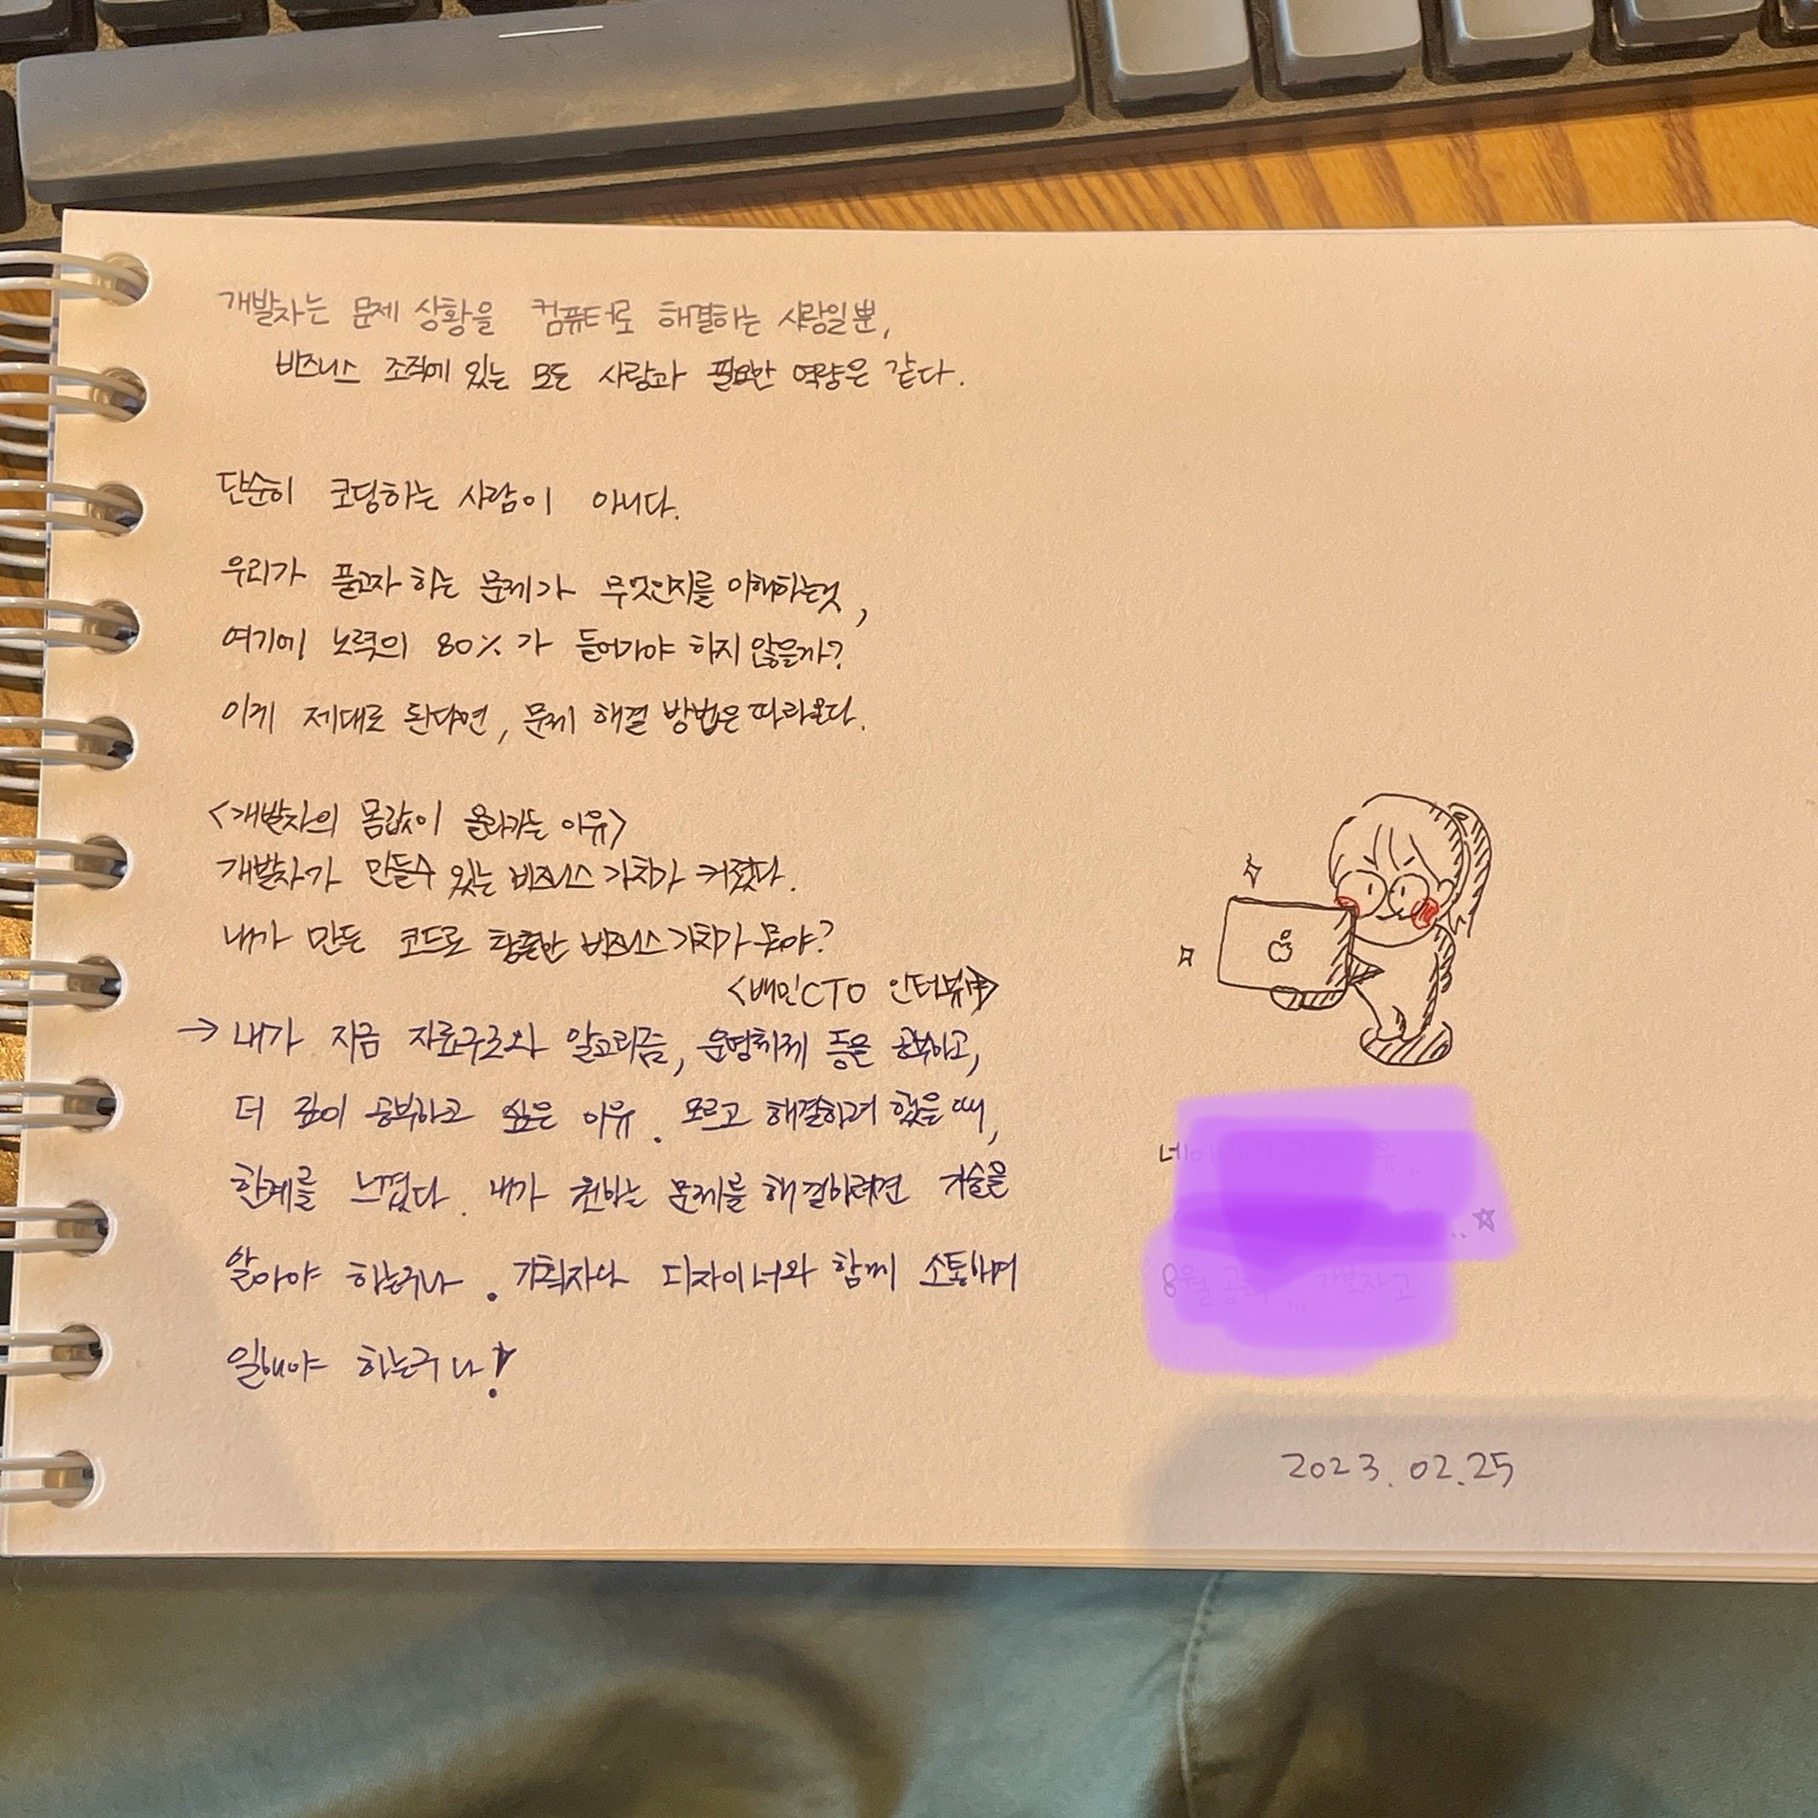 개발자는 문제 상황을 컴퓨터로 해결하는 사람일뿐,
비즈니스 조직에 있는 모든 사람과 필요한 역량은 같다.
단순히 코딩하는 사람이 아니다.
우리가 풀고자 하는 문제가 무엇인지를 이해하는것,
여기에 노력의 80%가 들어가야 하지 않을까?
이게 제대로 된다면, 문제 해결 방법은 따라온다.
<개발자의 몸값이 올라가는 이유>
개발자가 만들수 있는 비즈니스 가치가 커졌다.
내가 만든 코드로 창출한 비즈니스 가치가 뭐야?
<배민CTO 인터뷰中>
→ 내가 지금 자료구조와 알고리즘, 운영체제 등을 공부하고,
더 깊이 공부하고 싶은 이유. 모르고 해결하려 했을 때,
한계를 느꼈다. 내가 원하는 문제를 해결하려면 기술을
알아야 하는구나. 기획자나 디자이너와 함께 소통하며
일해야 하는구나!
8월
2023.02.25